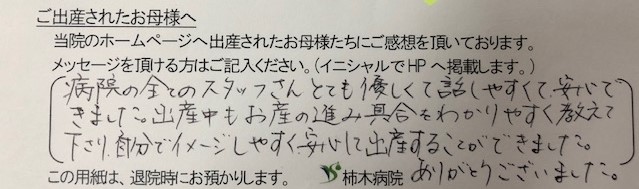 ご出産されたお母様へ
当院のホームページへ出産されたお母様たちにご感想を頂いております。
メッセージを頂ける方はご記入ください。(イニシャルでHPへ掲載します。)
病院の全てのスタッフさんとても優しくて話しやすくて、安心で
きました。出産中もお産の進み具合をわかりやすく教えて
下さり、自分でイメージしやすく、安心して出産することができました。
ありがとうございました。
この用紙は、退院時にお預かりします。 柿木病院